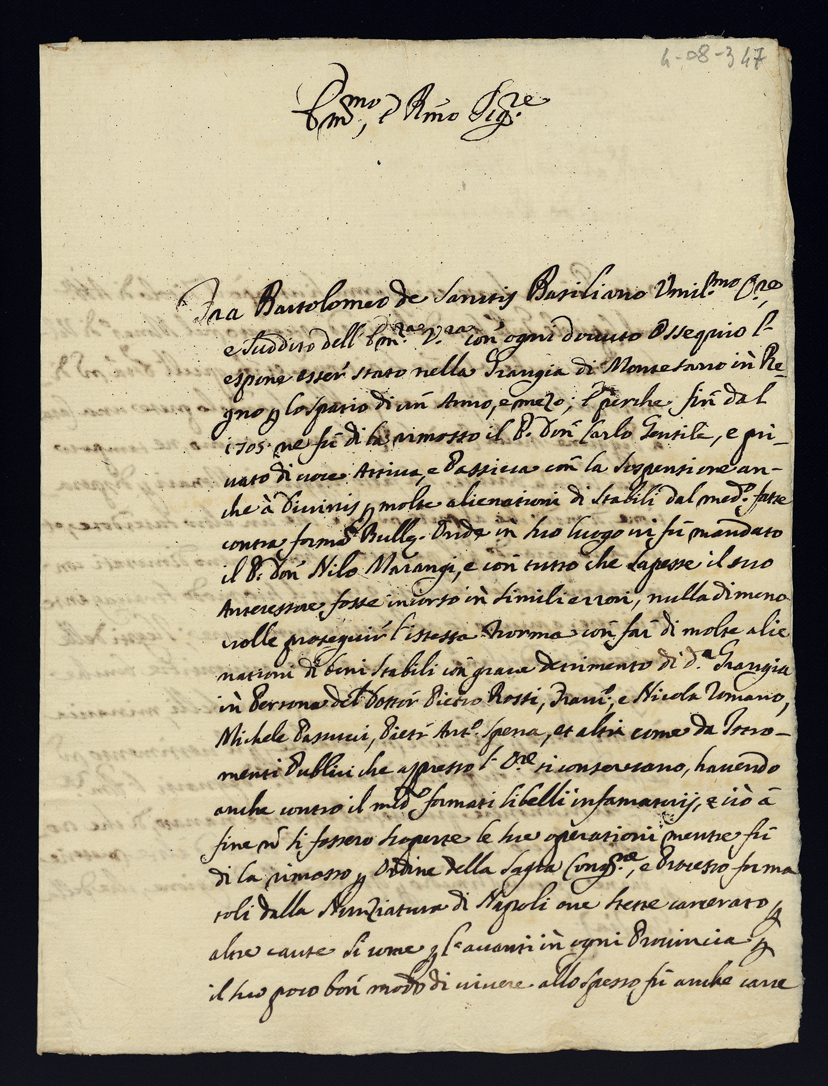 4-08-347
Em.mo, e Rmo Sig.re
Fra Bartolomeo de Sanctis Basiliano Vmil.mo Ore,
e suddito dell'Em.za V.ra con ogni dovuto Ossequio l'
espone esser stato nella Grangia di Montesano in Re-
gno p lo spatio di un Anno, e mezo, e perche sin dal
1705. ne fù di la rimosso il P. Don Carlo Gentile, e pri-
vato di voce Attiva, e Passiva con la sospensione an-
che à Divinis p molte alienationi di stabili dal med.o fatte
contra forma Bullę. Onde in suo luogo vi fù mandato
il P. Don Nilo Marangi, e con tutto che sapesse il suo
Antecessore fosse incorso in simili errori, nulladimeno
volle proseguir l'istessa Norma con far di molte alie
nationi di beni stabili con grave detrimento di d.a Grangia
in Persona del Dottor Pietro Rossi, Fran.o, e Nicola Romano,
Michele Pasucci, Pietr'Ant.o Spena, et altri come da Istro-
menti Publici che appresso l'Ore si conservano, havendo
anche contro il med.o formati libelli infamatorij, e ciò à
fine nō si fossero scoperte le sue operationi mentre fù
di la rimosso p Ordine della Sagra Cong.ne, e Processo forma
toli dalla Nunziatura di Napoli ove stette carcerato p
altre cause si come p l'avanti in ogni Provincia p
il suo poco bon modo di vivere allo spesso fù anche carce